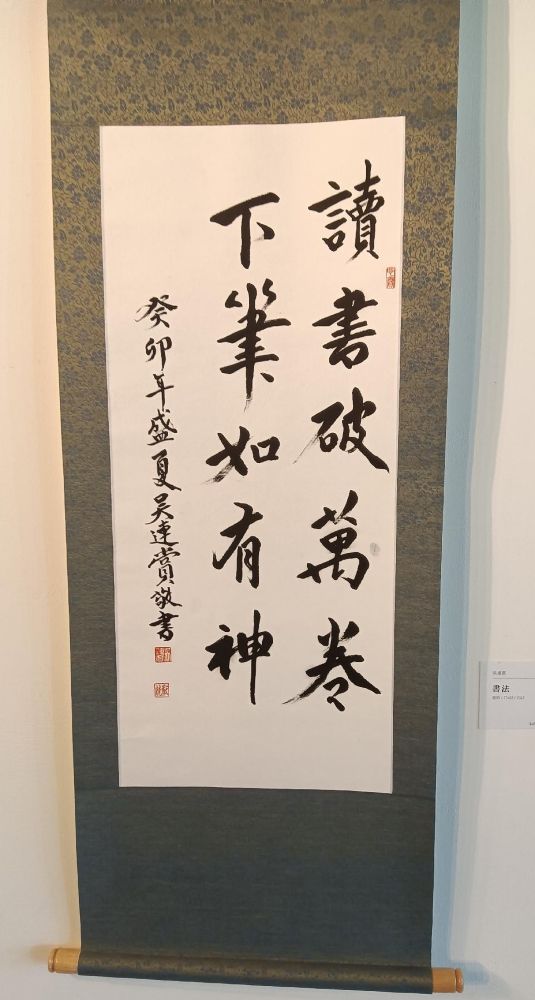 讀書破萬卷
下筆如有神
癸卯年盛夏吳連賞敬書
書法